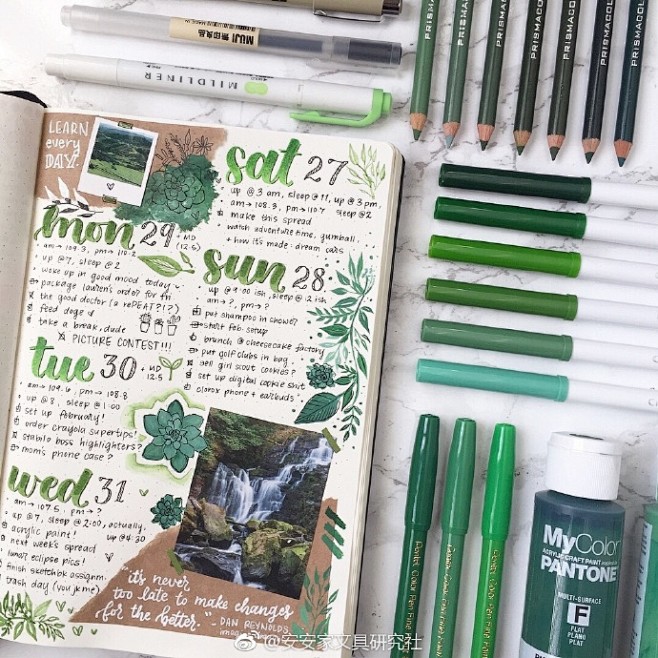 MUJ 無印良品
MILDLINER
PRISMACOLOR
PRISMACOLOR
PRISMACOLOR
PRISMACOLO
PRISMACOL
PRISMACOL
PRISMACO
LEARN
every
DAY.
sat 27
up @ 3 am, sleep @ 11, up @ 3 pm,
am → 108.3, pm → 110.7 sleep @ 2
make this spread
watch adventure time, gumball,
+ how it's made: dream cars
mon 29
MD
(12.5)
am → 109.3, pm → 110.2
up @ 7, sleep @ 2
woke up in good mood today
package lauren's order for fri
the good doctor (a REPEAT?!?)
feed dogs
take a break, dude
PICTURE CONTEST!!!
sun 28
up @ 9:00 ish, sleep @ 2 ish
am → ?, pm → ?
put shampoo in shower
start feb setup
brunch @ cheesecake factory
put golf clubs in bag
sell girl scout cookies?
set up digital cookie shit
clorox phone + earbuds
tue 30
MD
12.5
am → 109.6, pm → 108.8
up @ 8, sleep @ 1:00
set up february!
order crayola supertips!
stabilo boss highlighters?
mom's phone case?
wed 31
am → 107.5, pm → ?
up @ 7, sleep @ 2:00, actually,
up @ 4:30
acrylic paint!
next week's spread
lunar eclipse pics!
finish sketchbk assignm.
trash day
"it's never
too late to make changes
for the better."
- DAN REYNOLDS
Pentel Color Pen Fine
Pentel Color Pen Fine
Pentel Color Pen Fine
MyColor
ACRYLIC CRAFT PAINT
PANTONE
MULTI-SURFACE
F
FLAT
PLANO
PLAT
@安安家文具研究社